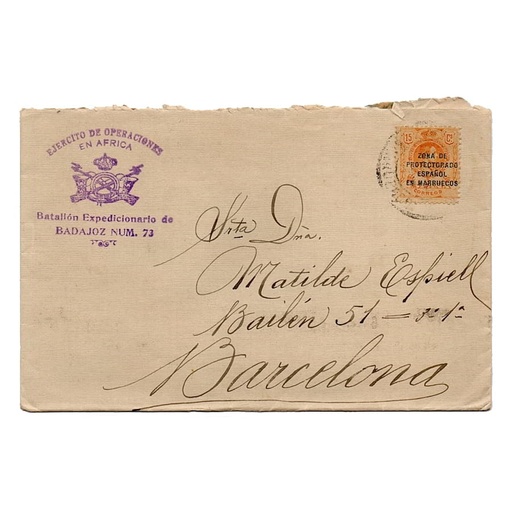 EJERCITO DE OPERACIONES
EN AFRICA
Batallón Expedicionario de
BADAJOZ NUM. 73
15 Cs
ZONA DE
PROTECTORADO
ESPAÑOL
EN MARRUECOS
CORREOS
Srta Dña.
Matilde Espiell
Bailén 51 = 1ª
Barcelona